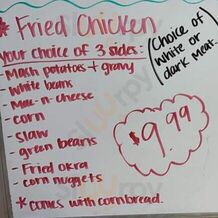 * Fried Chicken
(Choice of
white or
dark meat.)
your choice of 3 sides:
- Mash potatoes + gravy
- white beans
- Mac-n-cheese
- corn
- slaw
- green beans
- Fried okra
- corn nuggets
$9.99
* comes with cornbread.